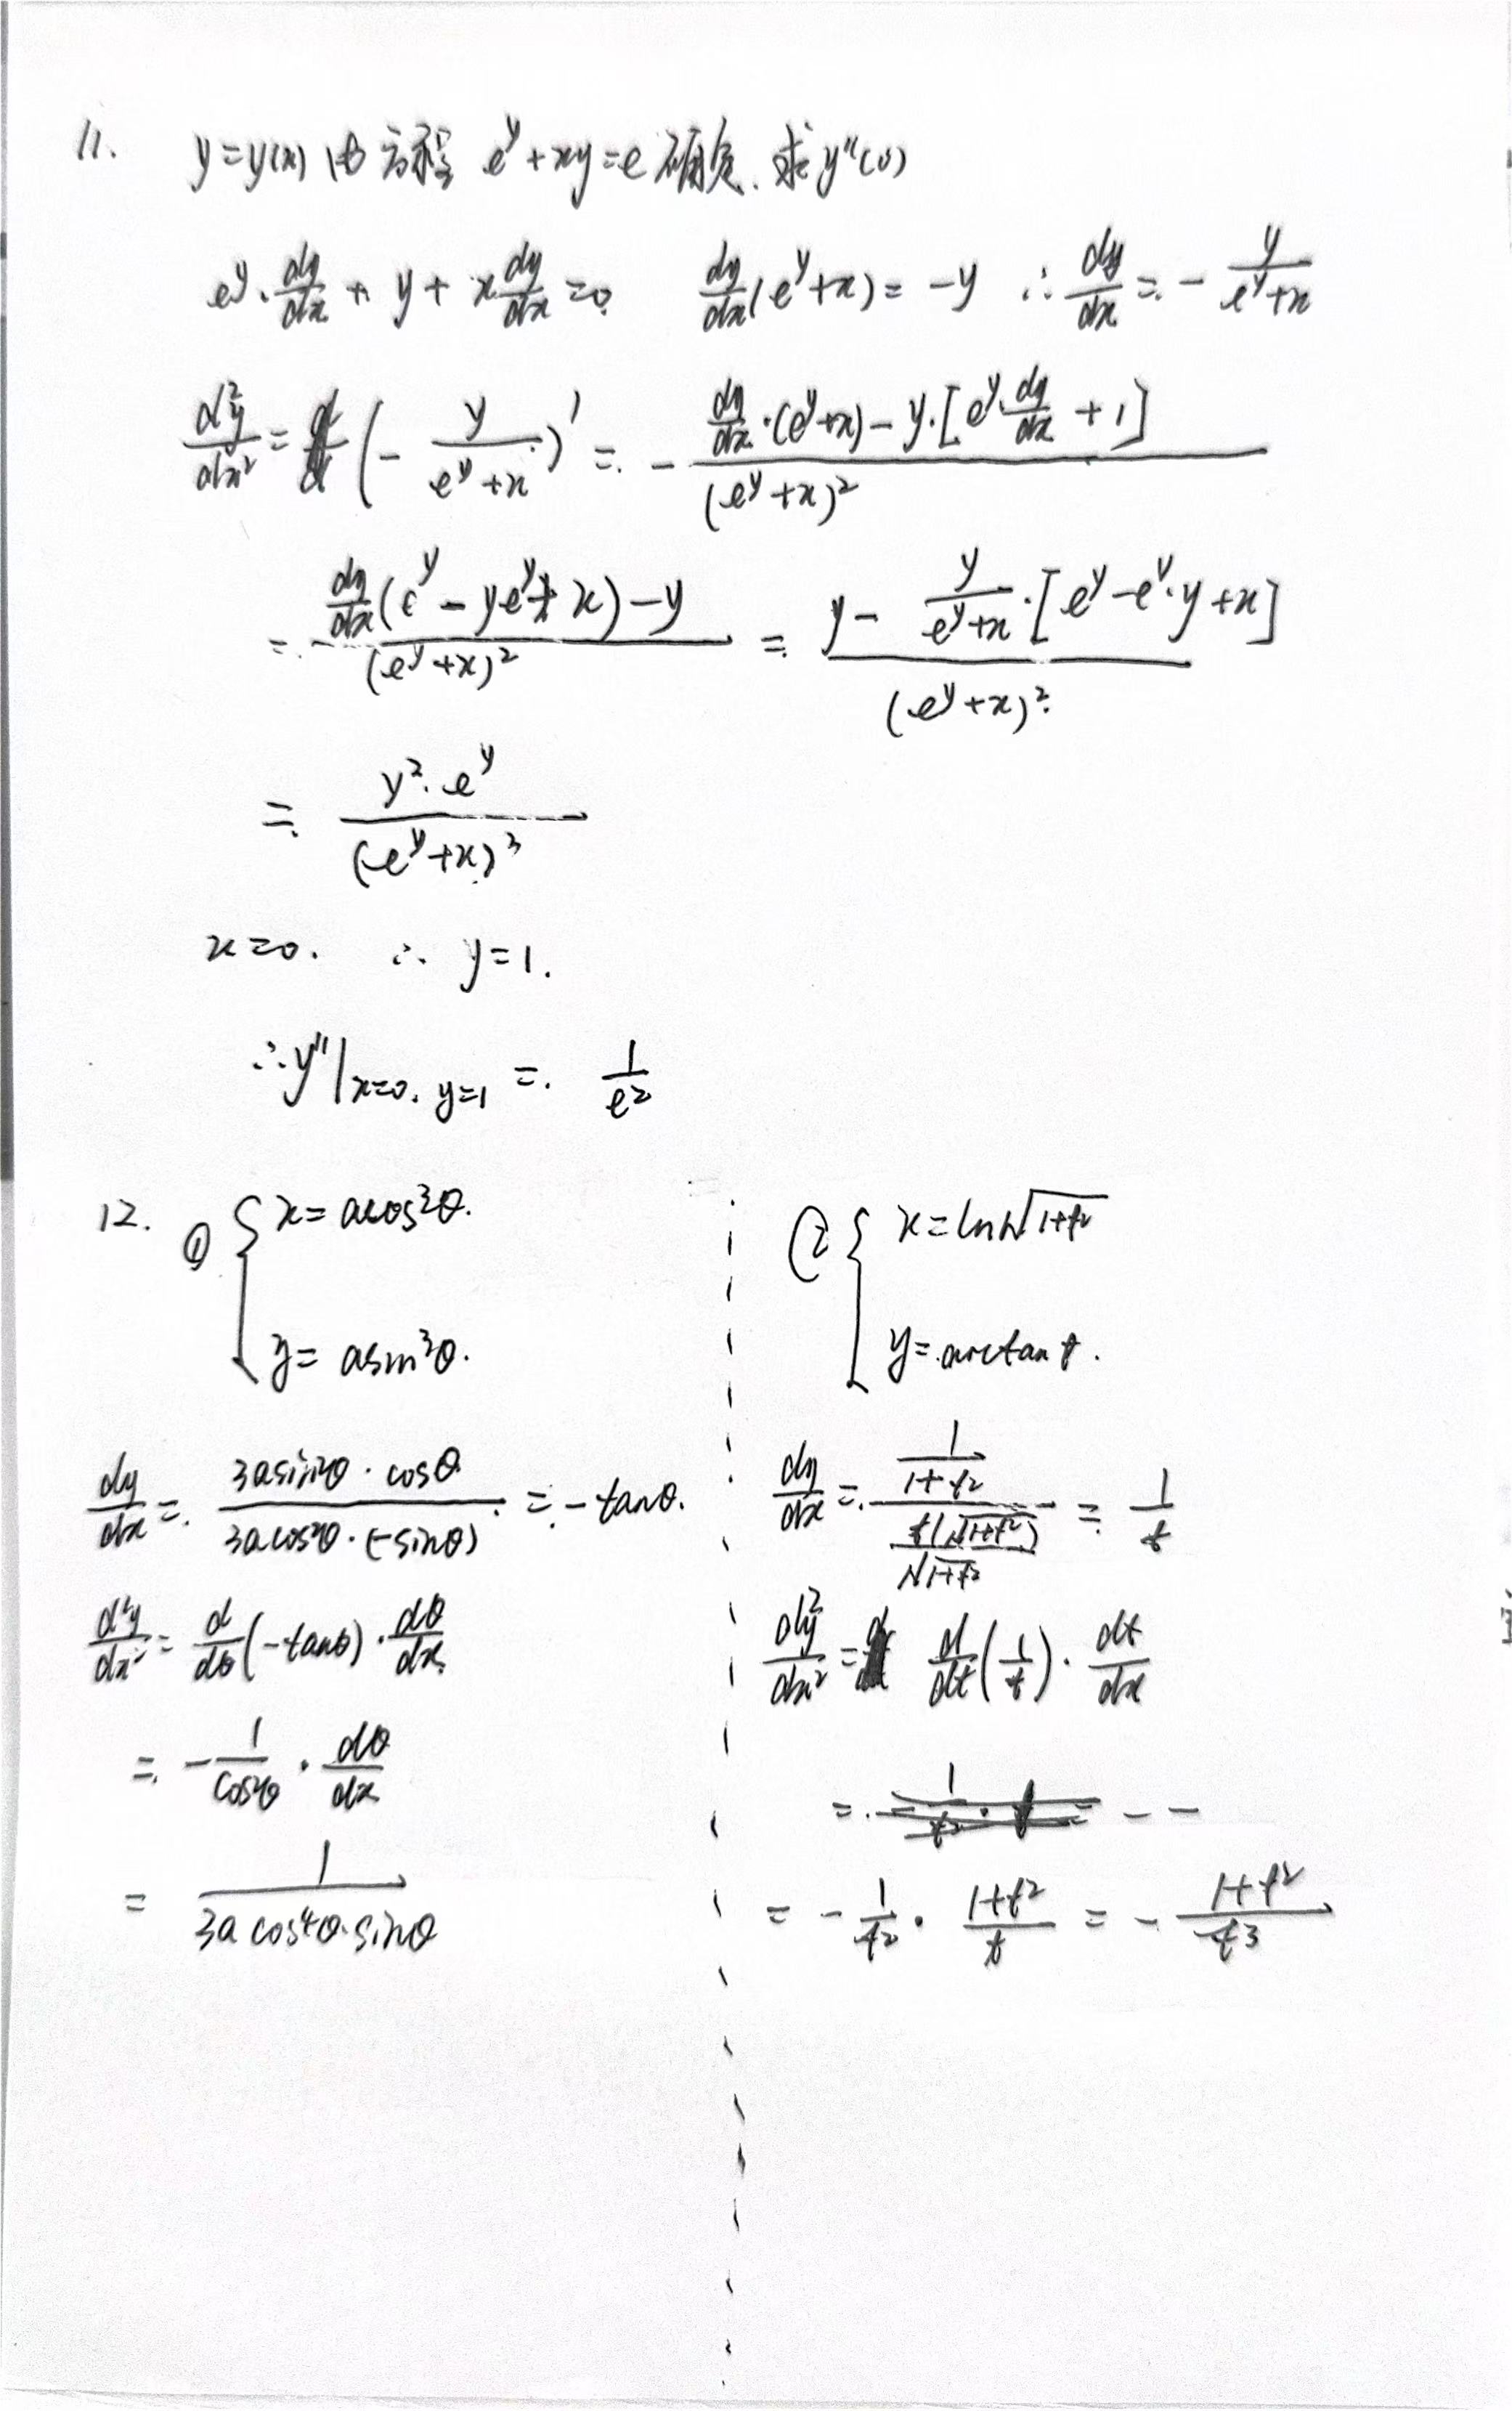 11. y=y(x) 由方程 e^y+xy=e 确定. 求y''(0)
e^y·dy/dx + y + x dy/dx =0   dy/dx(e^y+x) = -y   ∴ dy/dx = - y/(e^y+x)
d²y/dx² = (- y/(e^y+x))' = - (dy/dx·(e^y+x) - y·[e^y·dy/dx + 1])/(e^y+x)²
= - (dy/dx(e^y - ye^y + x) - y)/(e^y+x)² = (y - y/(e^y+x)·[e^y - e^y·y + x])/(e^y+x)²
= y²·e^y/(e^y+x)³
x=0. ∴ y=1.
∴ y''|x=0. y=1 = 1/e²
12. ① { x = acos³θ.
y = asin³θ.
dy/dx = 3asin²θ·cosθ/(3acos²θ·(-sinθ)) = -tanθ.
d²y/dx² = d/dθ(-tanθ)·dθ/dx
= - 1/cos²θ · dθ/dx
= 1/(3a cos⁴θ·sinθ)
② { x = ln√(1+t²)
y = arctan t.
dy/dx = (1/(1+t²))/(t(√(1+t²))/√(1+t²)) = 1/t
dy²/dx² = d/dt(1/t)·dt/dx
= - 1/t² · (1+t²)/t = - (1+t²)/t³